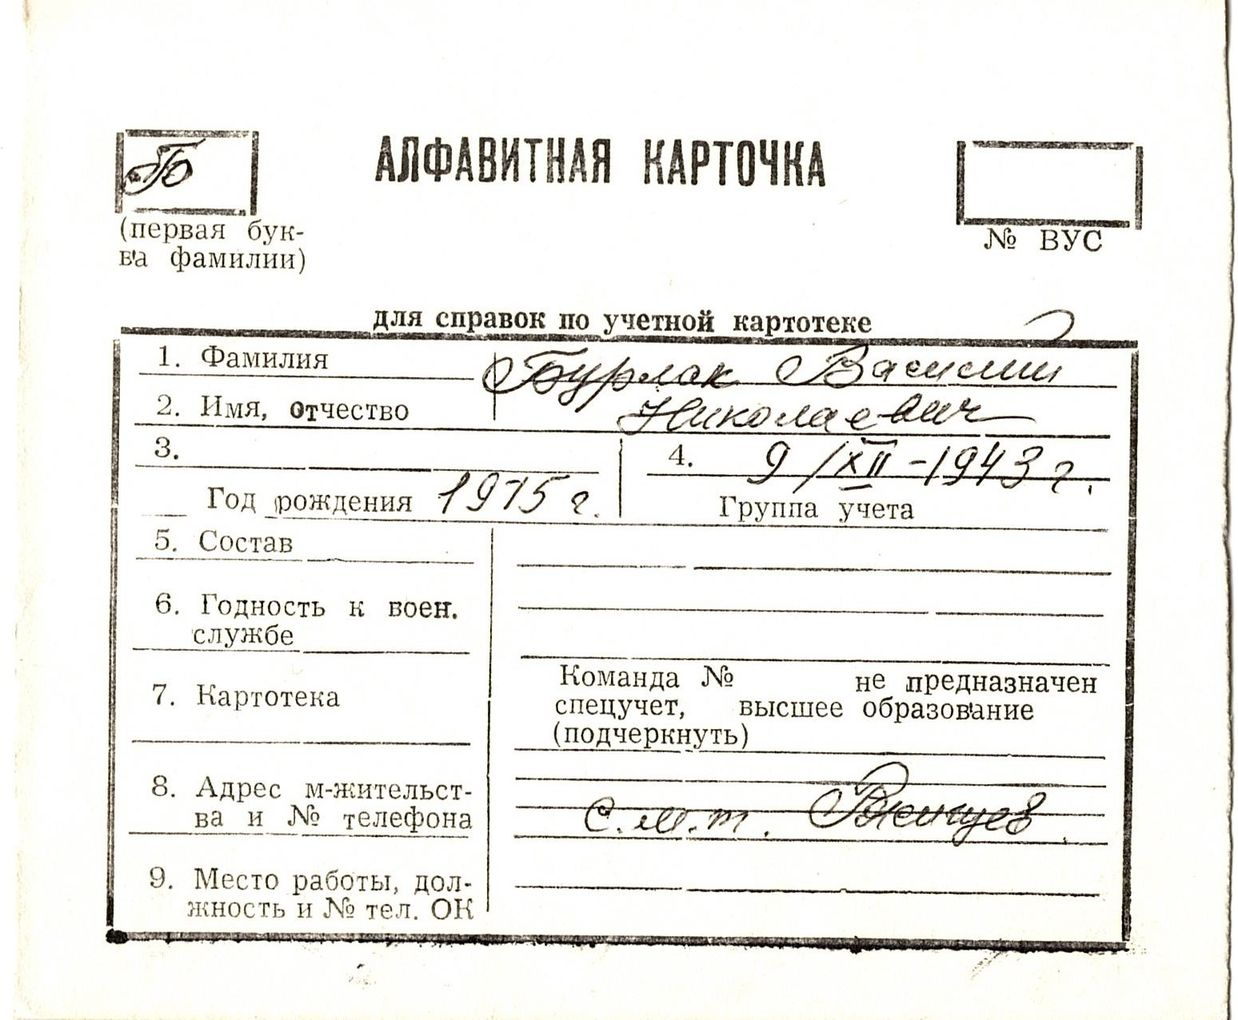 Б
АЛФАВИТНАЯ КАРТОЧКА
(первая бук-
ва фамилии)
№ ВУС
для справок по учетной картотеке
1. Фамилия Бурлак Василий
2. Имя, отчество Николаевич
3.
4. 9/XII-1943 г.
Год рождения 1915 г.
Группа учета
5. Состав
6. Годность к воен.
службе
7. Картотека
Команда № не предназначен
спецучет, высшее образование
(подчеркнуть)
8. Адрес м-жительст-
ва и № телефона
с.м.т.
9. Место работы, дол-
жность и № тел. ОК